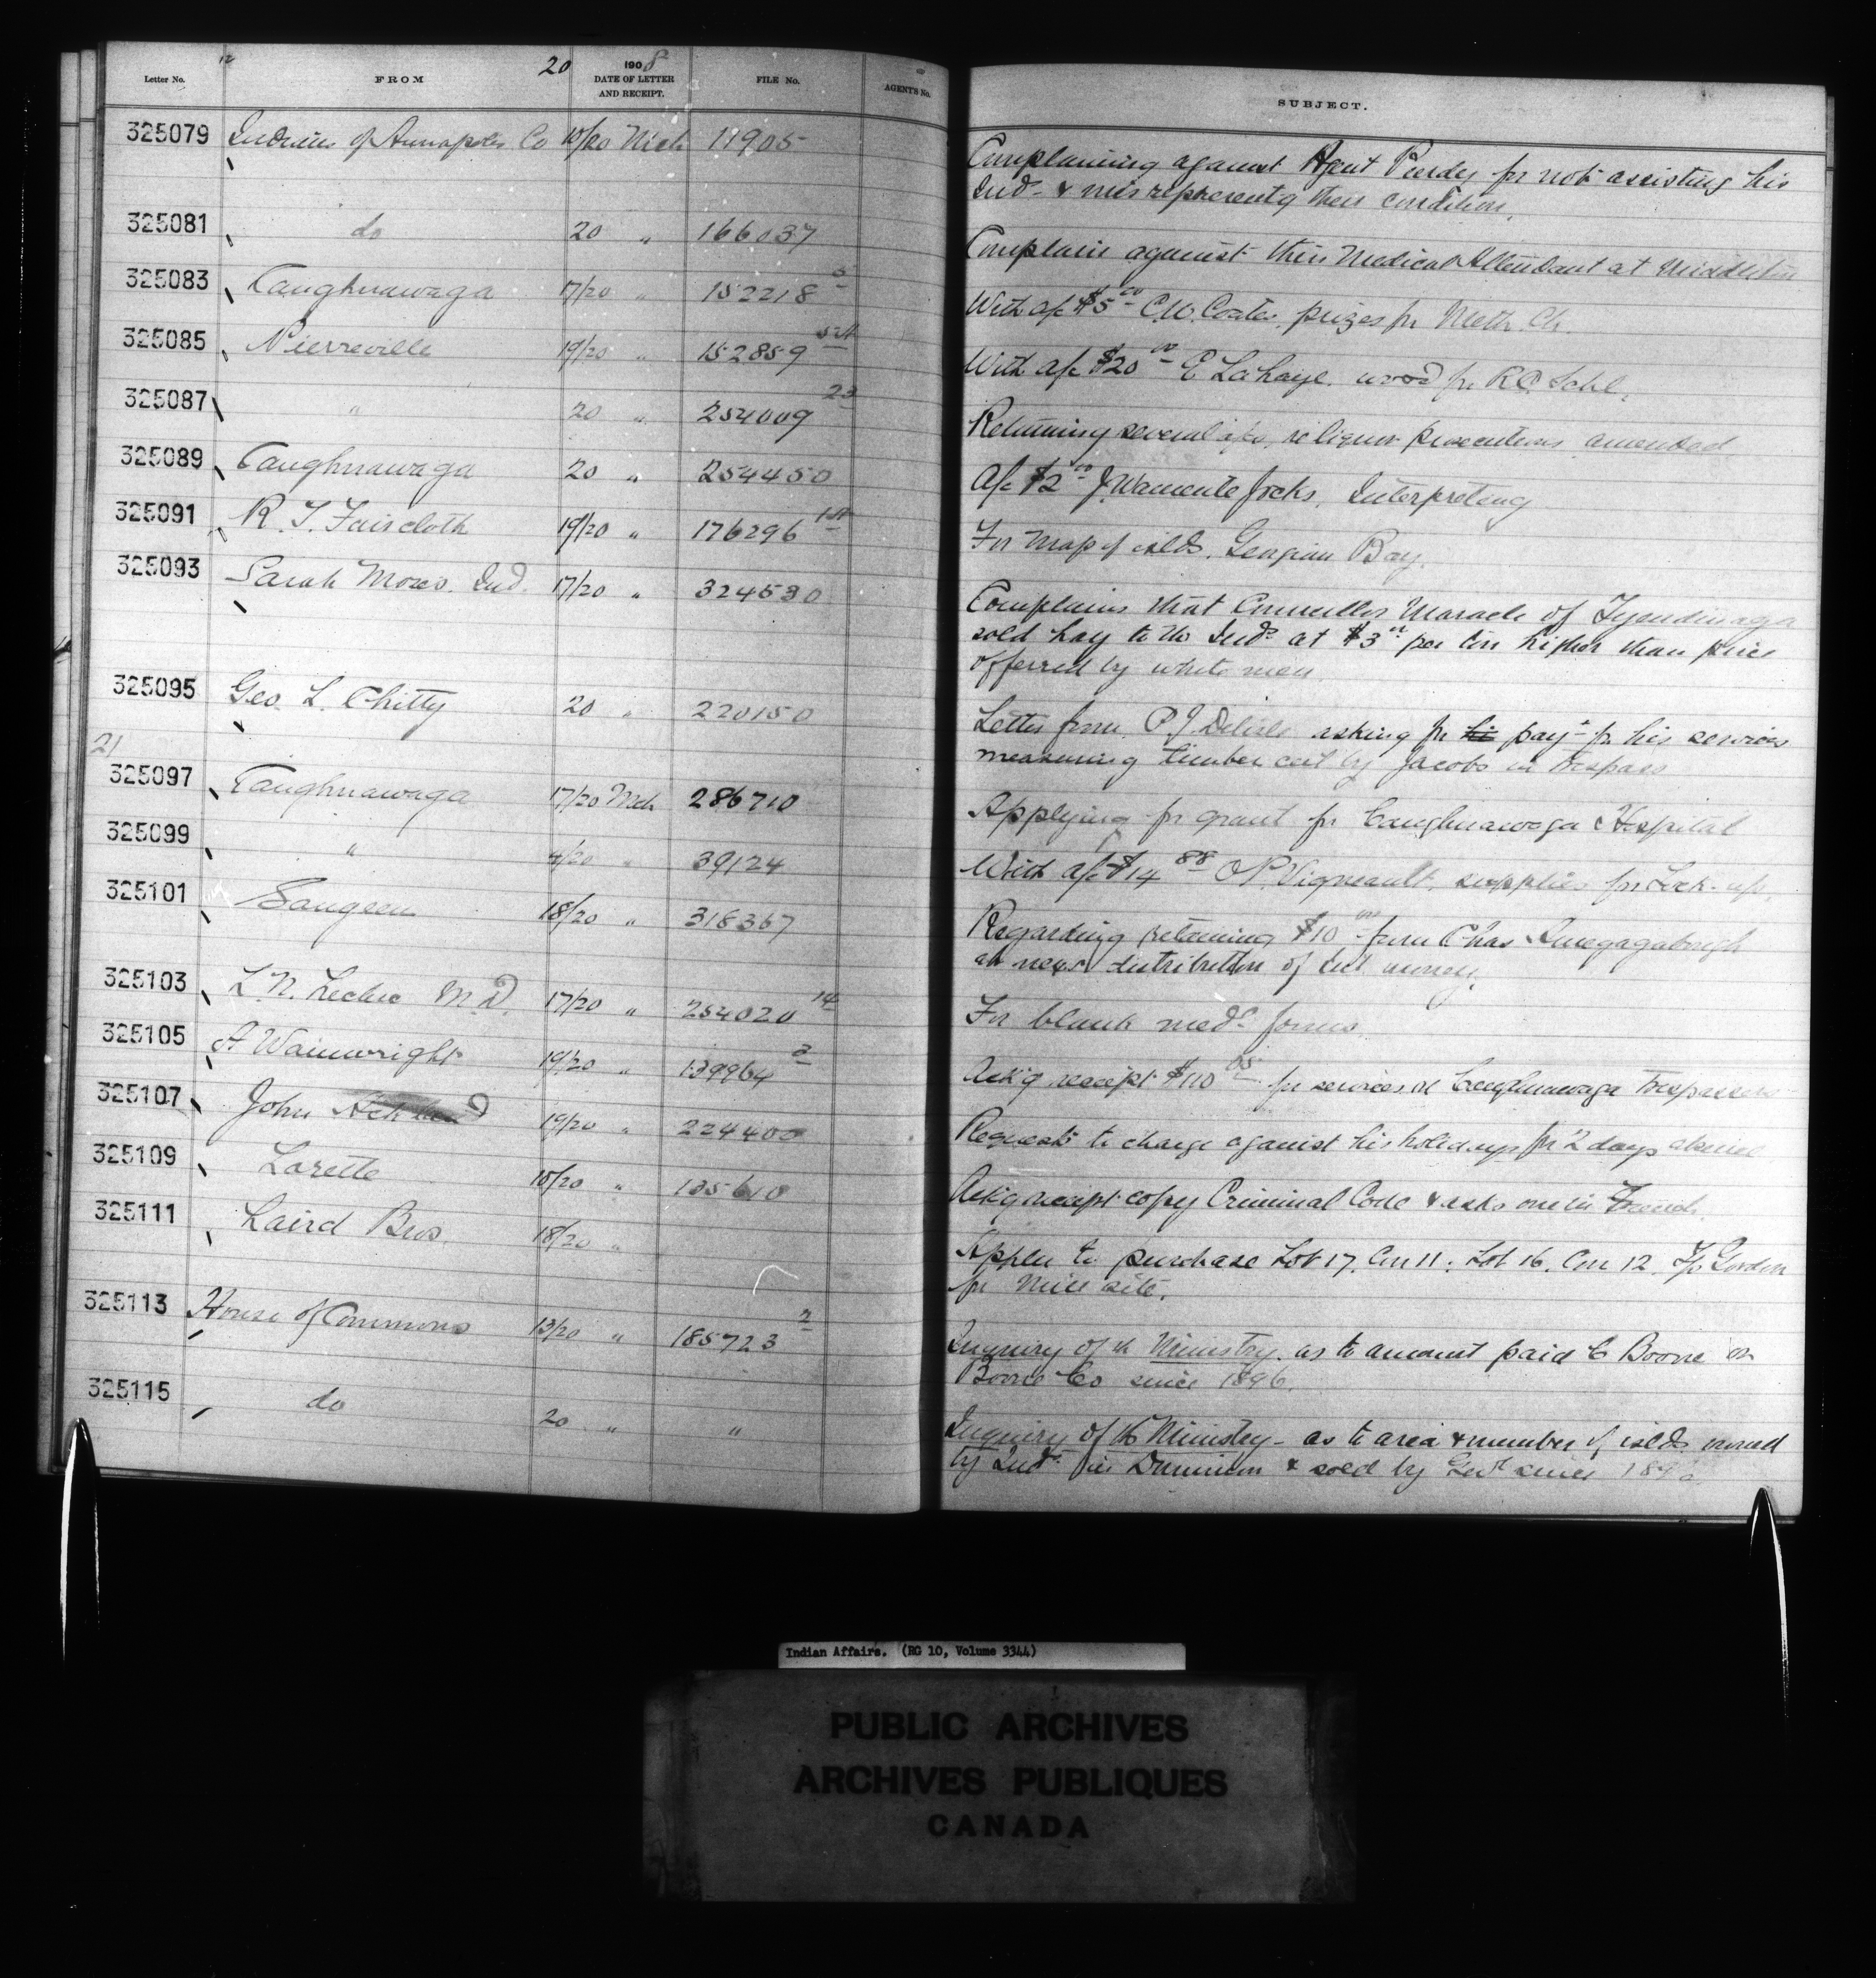 Letter No. FROM 20 1908 DATE OF LETTER AND RECEIPT. FILE No. AGENT'S No. SUBJECT.
325079 Indians of Annapolis Co 10/20 Mch 11905 Complaining against Agent Purdy for not assisting his
Inds & misrepresentg their condition.
325081 do 20 " 166037 Complain against their Medical Attendant at Middleton
325083 Caughnawaga 17/20 " 152218 With a/c $5.00 C.W. Coates, prizes for Meth. Ch.
325085 Pierreville 19/20 " 152859 With a/c $20.00 E Lahaye, wood for RC Schl.
325087 " 20 " 254009 23 Returning several a/cs, re liquor prosecutions amended
325089 Caughnawaga 20 " 254450 A/c $2.00 J. Wamente Jocks, Interpreting
325091 R. T. Faircloth 19/20 " 176296 For map of islds. Georgian Bay.
325093 Sarah Moses. Ind. 17/20 " 324530 Complains that Councillor Maracle of Tyendinaga
sold hay to the Inds at $3.00 per ton higher than price
offerred by white men.
325095 Geo. L. Chitty 20 " 220150 Letter from P. J. Delisle asking for his payt for his services
measuring timber cut by Jacobs in trespass
21
325097 Caughnawaga 17/20 Mch 286710 Applying for grant for Caughnawaga Hospital
325099 " /20 " 39124 With a/c $14.88 O P. Vigneault, supplies for Lock-up.
325101 Saugeen 18/20 " 318367 Regarding retaining $10.00 from Chas
at next distribution of int money.
325103 L. N. Leclerc M.D. 17/20 " 254020 14 For blank medl forms
325105 A Wainwright 19/20 " 139964 2 Ackg receipt $110 for services at Caughnawaga trespassers
325107 John 19/20 " 224400 Requests to charge against his holidays for 2 days absence
325109 Lorette 18/20 " 135610 Ackg receipt copy Criminal Code & asks one in French.
325111 Laird Bros. 18/20 " Appln to purchase Lot 17, Con 11, Lot 16, Con 12, T/p Gordon
for mill site.
325113 House of Commons 13/20 " 185723 2 Inquiry of the Ministry. as to amount paid C Boone or
Boone Co since 1896.
325115 do 20 " " Inquiry of the Ministry - as to area & number of islds owned
by Inds in Dominion & sold by Govt since 1896
Indian Affairs. (RG 10, Volume 3344)
PUBLIC ARCHIVES
ARCHIVES PUBLIQUES
CANADA